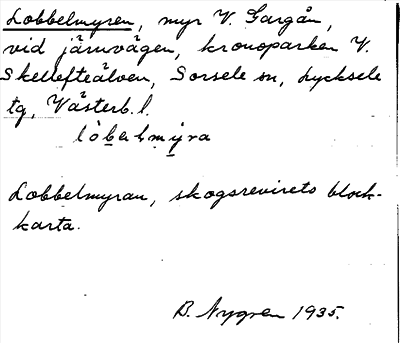 Lobbelmyren, myr V. Gargån,
vid järnvägen, kronoparken V.
Skellefteälven, Sorsele sn, Lycksele
tg, Västerb. l.
lòbelmy̆ra
Lobbelmyran, skogsrevirets block-
karta.
B. Nygren 1935.